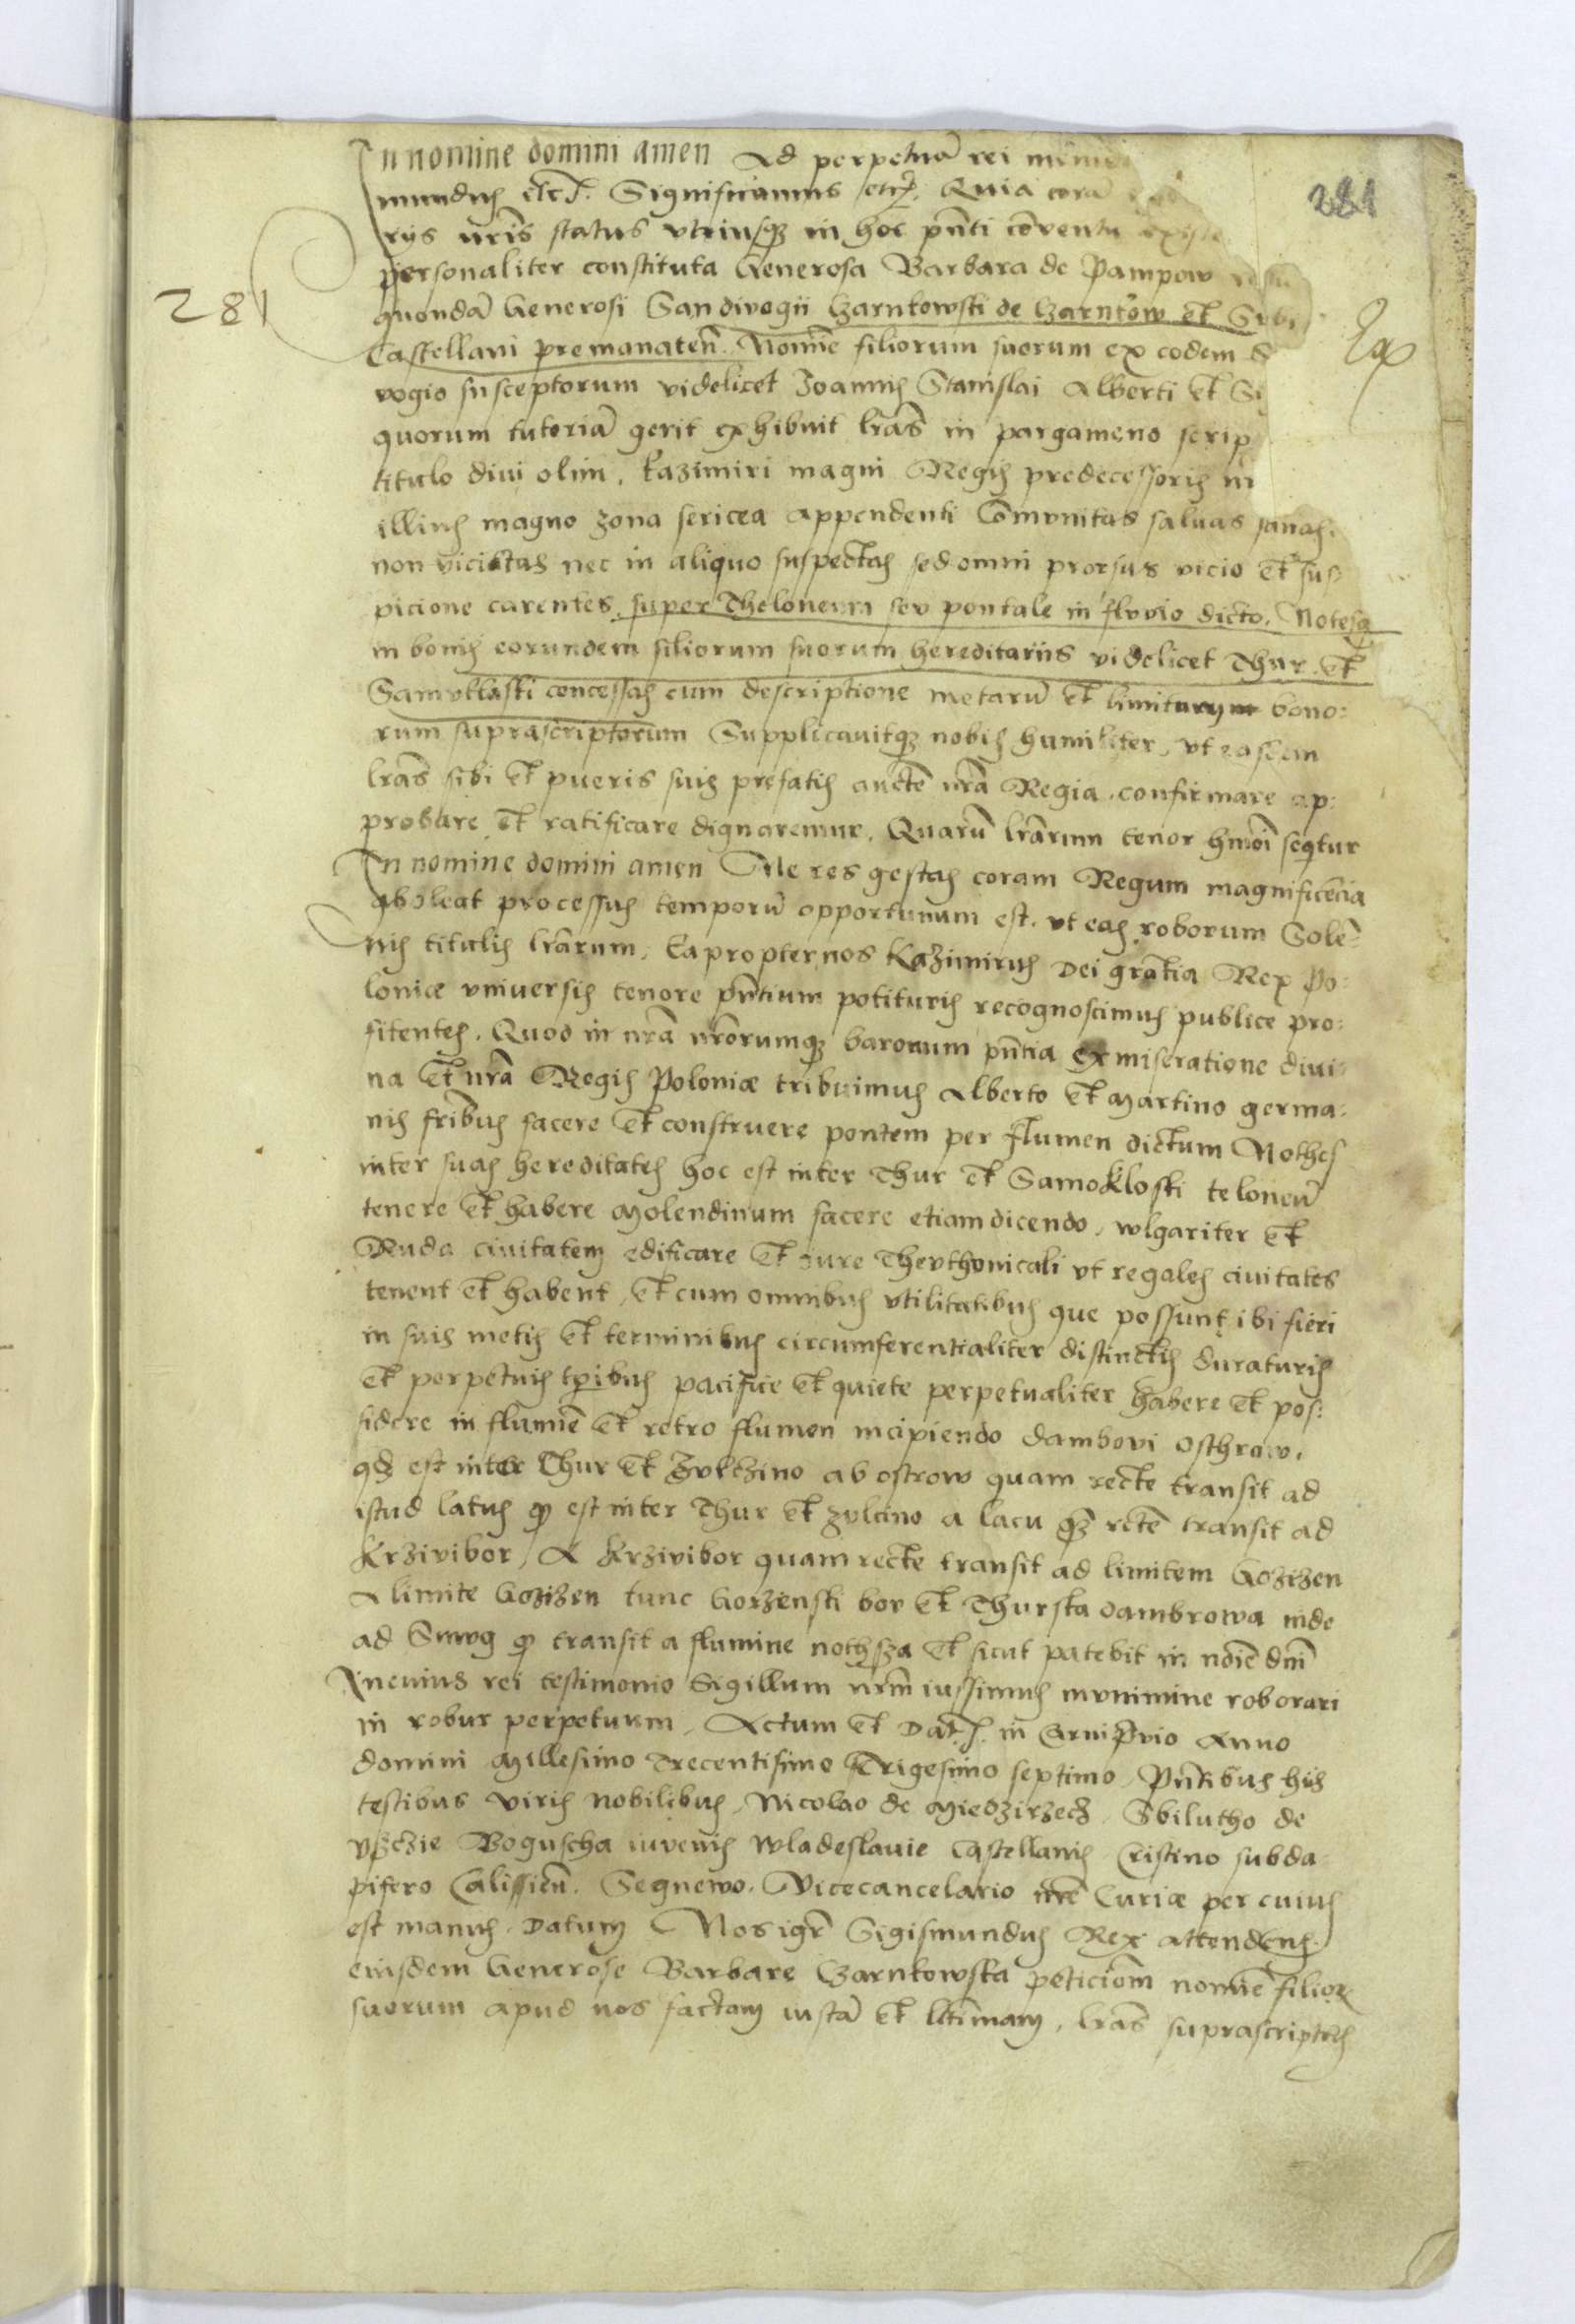 In nomine domini amen Ad perpetuā rei
281
mundus etc. Significamus etc. Quia corā
riis nr̄is status utriusqȝ in hoc pn̄ti cōventu
personaliter constituta Generosa Barbara de Pampow
281
quondā Generosi Sandivogii Czarnkowski de Czarnkow et
Castellani premanateñ. Nomīe filiorum suorum ex eodem S
vogio susceptorum videlicet Joannis Stanislai Alberti et Si
quorum tutoriā gerit exhibuit lrās in pargameno scrip
titulo divi olim. Kazimiri magni Regis predecessoris nr̄
illius magno zona sericea appendenti Cōmunitas salvas sanas.
non viciatas nec in aliquo suspectas sed omni prorsus vicio et sus:
picione carentes. super Theloneum seu pontale in fluvio dicto. Notesa
in bonis eorundem filiorum suorum hereditariis videlicet Thur. et
Samoklaski concessas cum descriptione metarū et limitum bono:
rum suprascriptorum Supplicavitqȝ nobis humiliter, ut easdem
lrās sibi et pueris suis prefatis auctē nr̄a Regia. confirmare ap:
probare et ratificare dignaremur. Quarū lrārum tenor hmōi seqtur
In nomine domini amen Ne res gestas coram Regum magnificēcia
aboleat processus temporū opportunum est. ut eas roborum Solē:
nis titulis lrārum. Eapropter nos Kazimirus Dei gratia Rex Po:
loniæ universis tenore pn̄tium potituris recognoscimus publice pro:
fitentes. Quod in nr̄a nr̄orumqȝ baronum pn̄tia ex miseratione divi:
na et nr̄a Regis Poloniæ tribuimus Alberto et Martino germa:
nis fr̄ibus facere et construere pontem per flumen dictum Nothes
inter suas hereditates hoc est inter Thur et Samokloski teloneū
tenere et habere Molendinum facere etiam dicendo, wlgariter et
Ruda civitatem edificare et jure Theuthonicali ut regales civitates
tenent et habent, et cum omnibus utilitatibus que possunt ibi fieri
in suis metis et terminibus circumferentialiter distinctis duraturis
et perpetuis tp̄ibus pacifice et quiete perpetualiter habere et pos:
sidere in flumīe et retro flumen incipiendo dambovi Osthrow.
qd̄ est inter Thur et Zultzino ab ostrow quam recte transit ad
istud latus qd̄ est inter Thur et zulcino a lacu qȝ rctē transit ad
Krzivibor, A Krzivibor quam recte transit ad limitem Gozizen
A limite Gozizen tunc Gorzenski bor et Thurska dambrowa inde
ad Smug qd̄ transit a flumine nothsza et sicut patebit in nōīe dn̄i
In cuius rei testimonio Sigillum nr̄m iussimus munimine roborari
in robur perpetuum. Actum et Dat. in Gnivio Anno
domini Millesimo Trecentisimo Trigesimo septimo. Pn̄tibus his
testibus viris nobilibus. Nicolao de Miedzirzecz. Sbilutho de
uszczie Boguscha iuvenis Wladeslavie Castellanis Cristino subda:
pifero Calissieñ. Segnewo. Vicecancelario nr̄e Curiæ per cuius
est manus. Datum Nos igr̄ Sigismundus Rex attendens.
eiusdem Generose Barbare Czarnkowska peticiom nomīe filioꝝ
suorum apud nos factam iustā et ltīmam, lrās suprascriptas